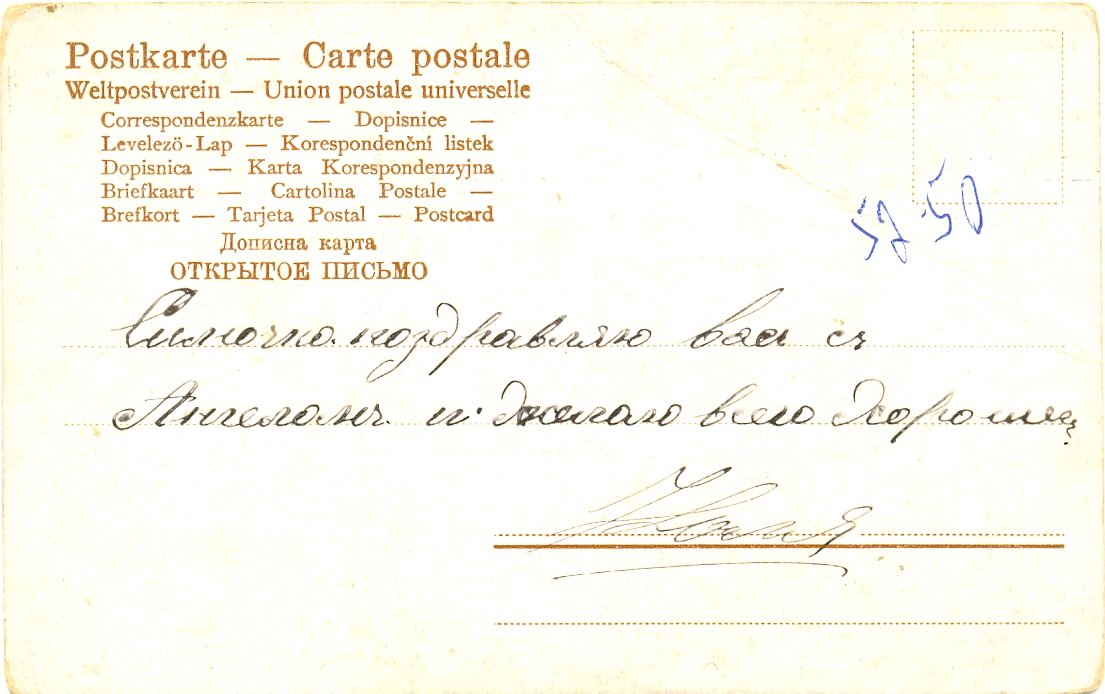 Postkarte — Carte postale
Weltpostverein — Union postale universelle
Correspondenzkarte — Dopisnice —
Levelező-Lap — Korespondenční listek
Dopisnica — Karta Korespondenzyjna
Briefkaart — Cartolina Postale —
Brefkort — Tarjeta Postal — Postcard
Дописна карта
ОТКРЫТОЕ ПИСЬМО
57-50
Симочка поздравляю васъ съ
Ангеломъ и желаю всего хорошаго